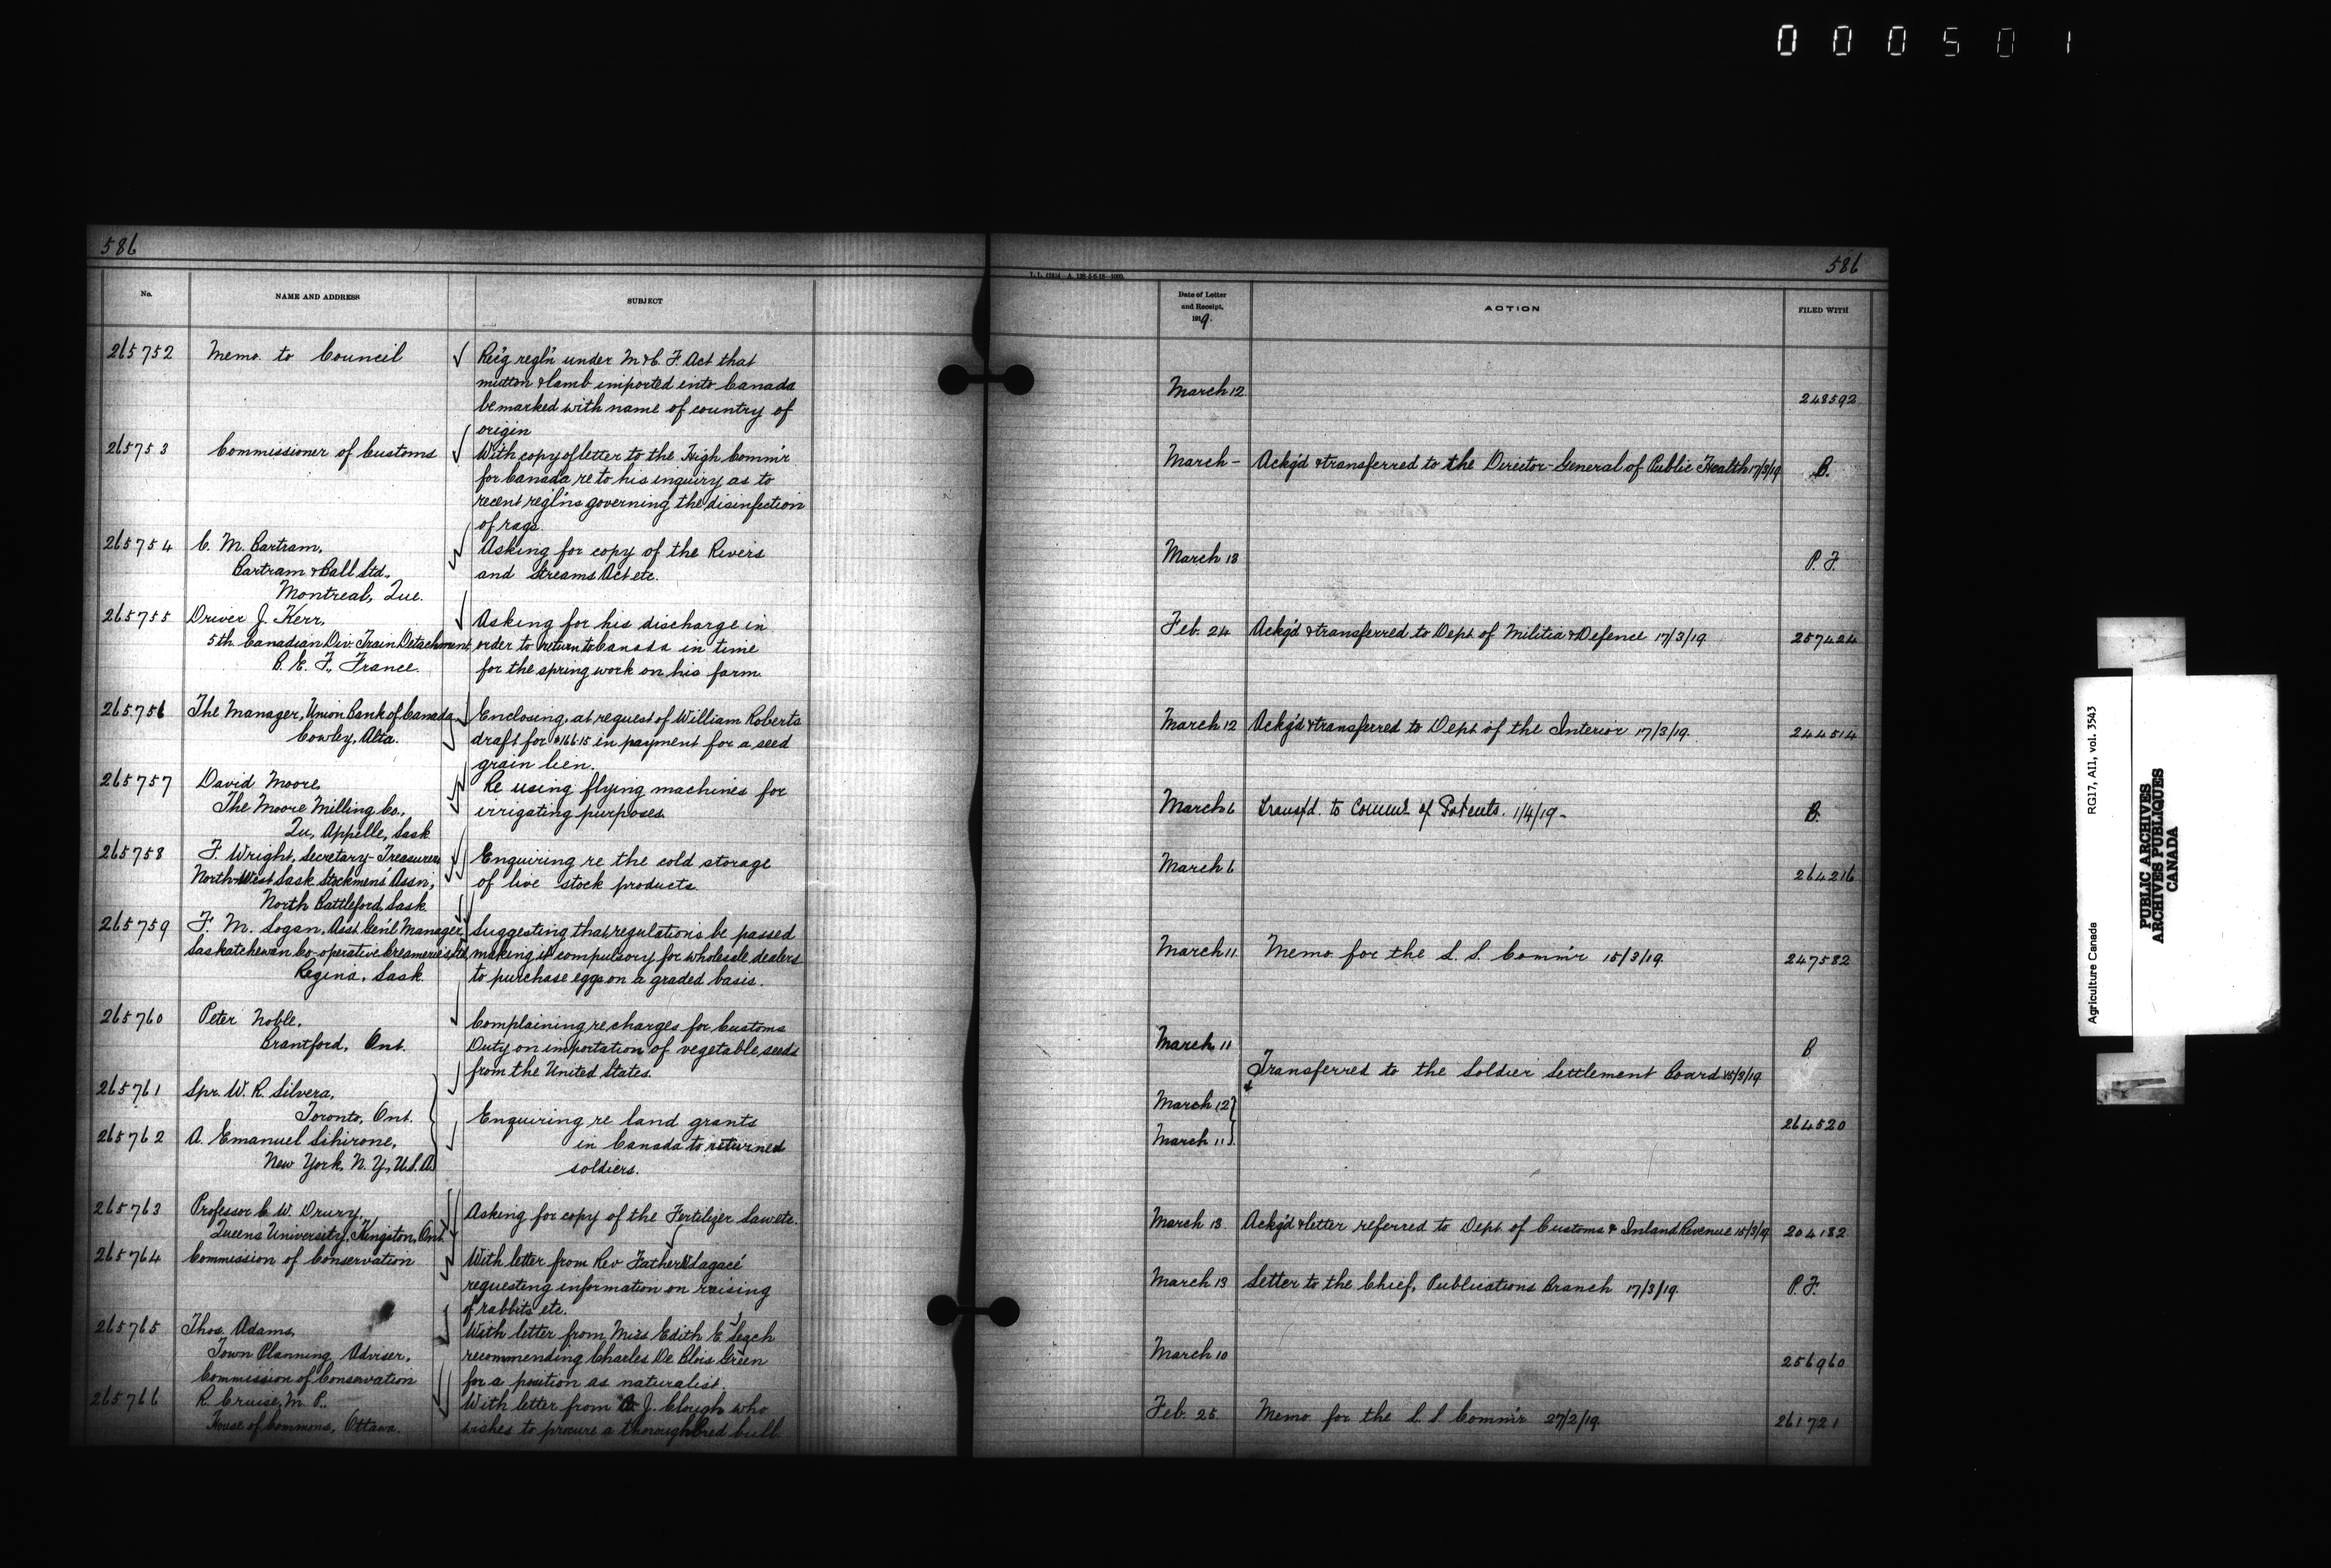 000501
586
No.
NAME AND ADDRESS
SUBJECT
265752
Memo. to Council
Re'g regl'n under M. & C. F. Act that
mutton & lamb imported into Canada
be marked with name of country of
origin
265753
Commissioner of Customs
With copy of letter to the High Comm'r
for Canada, re to his inquiry as to
recent regl'ns governing the disinfection
of rags.
265754
C. M. Bartram,
Bartram & Ball Ltd.,
Montreal, Que.
Asking for copy of the Rivers
and Streams Act etc.
265755
Driver J. Kerr,
5th Canadian Div. Train Detachment,
B. E. F., France.
Asking for his discharge in
order to return to Canada in time
for the spring work on his farm.
265756
The Manager, Union Bank of Canada,
Cowley, Alta.
Enclosing, at request of William Roberts
draft for $166.15 in payment for a seed
grain lien.
265757
David Moore,
The Moore Milling Co.,
Qu. Appelle, Sask.
Re using flying machines for
irrigating purposes.
265758
F. Wright, Secretary-Treasurer,
North-West Sask. Stockmens' Assn.,
North Battleford, Sask.
Enquiring re the cold storage
of live stock products.
265759
F. M. Logan, Asst. Gen'l Manager,
Saskatchewan Co-operative Creameries Ltd.,
Regina, Sask.
Suggesting that regulations be passed
making it compulsory for wholesale dealers
to purchase eggs on a graded basis.
265760
Peter Noble,
Brantford, Ont.
Complaining re charges for Customs
Duty on importation of vegetable seeds
from the United States.
265761
Spr. W. R. Silvera,
Toronto, Ont.
265762
A. Emanuel Sihirone,
New York, N. Y., U.S.A.
Enquiring re land grants
in Canada to returned
soldiers.
265763
Professor C. W. Drury,
Queens University, Kingston, Ont.
Asking for copy of the Fertilizer Law etc.
265764
Commission of Conservation
With letter from Rev Father Lagacé
requesting information on raising
of rabbits etc.
265765
Thos. Adams,
Town Planning Adviser,
Commission of Conservation
With letter from Miss Edith E. Leach
recommending Charles De Blois Green
for a position as naturalist.
265766
R. Cruise, M. P.,
House of Commons, Ottawa.
With letter from J. Clough who
wishes to procure a thoroughbred bull
586
Date of Letter
and Receipt,
1919.
ACTION
FILED WITH
March 12
248592
March - Ackg'd & transferred to the Director-General of Public Health 17/3/19 B.
March 13 P. F.
Feb. 24 Ackg'd & transferred to Dept. of Militia & Defence 17/3/19 257424
March 12 Ackg'd & transferred to Dept of the Interior 17/3/19. 244514
March 6 Transf'd. to Comm'r of Patents. 1/4/19 - B.
March 6 264216
March 11. Memo. for the L. S. Comm'r 15/3/19. 247582
March 11 B
Transferred to the Soldier Settlement Board 15/3/19
March 12
March 11
264520
March 13. Ackg'd & letter referred to Dept. of Customs & Inland Revenue 15/3/19. 204182
March 13 Letter to the Chief, Publications Branch 17/3/19. P. F.
March 10 256960
Feb. 25. Memo. for the L. S. Comm'r 27/2/19. 261721
Agriculture Canada RG17, AI1, vol. 3543
PUBLIC ARCHIVES
ARCHIVES PUBLIQUES
CANADA